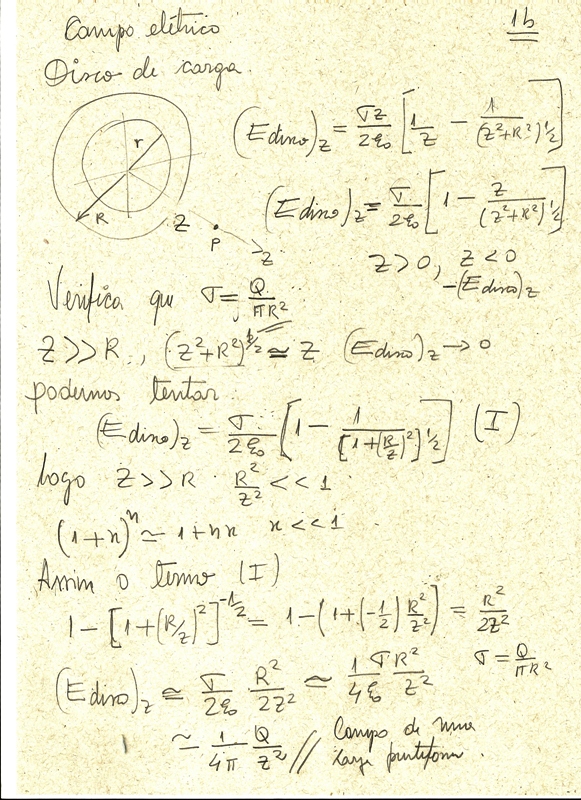 Campo elétrico 1b
Disco de carga.
r
R
Z
P
z
(E disco)_z = σz/2ε₀ [1/z - 1/(z²+R²)^1/2]
(E disco)_z = σ/2ε₀ [1 - z/(z²+R²)^1/2]
z>0, z<0
-(E disco)_z
Verifica que σ = Q/πR²
z>>R, (z²+R²)^1/2 ≃ z (E disco)_z → 0
podemos tentar:
(E disco)_z = σ/2ε₀ [1 - 1/[1+(R/z)²]^1/2] (I)
logo z>>R R²/z² <<1
(1+x)^n ≃ 1+nx x<<1
Assim o termo (I)
1-[1+(R/z)²]^-1/2 = 1-(1+(-1/2)R²/z²) = R²/2z²
(E disco)_z ≃ σ/2ε₀ R²/2z² ≃ 1/4ε₀ σR²/z² σ = Q/πR²
≃ 1/4π Q/z² // Campo de uma
carga puntiforme.